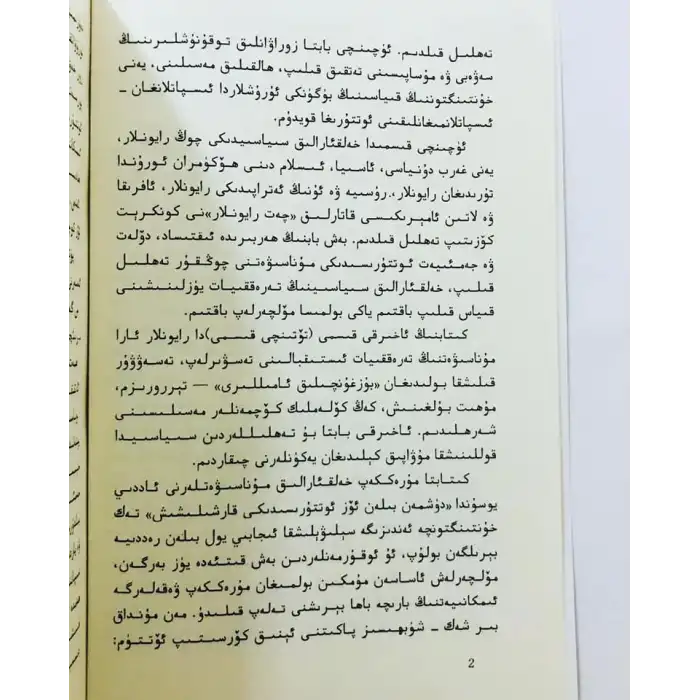 تەھلىل قىلدىم. ئۈچىنچى بابتا زوراۋانلىق توقۇنۇشلىرىنىڭ
سەۋەبى ۋە مۇساپىسىنى تەتقىق قىلىپ، ھالقىلىق مەسىلىنى، يەنى
خۇنتىنگتوننىڭ قىياسىنىڭ بۈگۈنكى ئۇرۇشلاردا ئىسپاتلانغان ـ
ئىسپاتلانمىغانلىقىنى ئوتتۇرىغا قويدۇم.
ئۈچىنچى قىسمىدا خەلقئارالىق سىياسىيدىكى چوڭ رايونلار،
يەنى غەرب دۇنياسى، ئاسىيا، ئىسلام دىنى ھۆكۈمران ئورۇندا
تۇرىدىغان رايونلار، رۇسىيە ۋە ئۇنىڭ ئەتراپىدىكى رايونلار، ئافرىقا
ۋە لاتىن ئامېرىكىسى قاتارلىق «چەت رايونلار»نى كونكرېت
كۆزىتىپ تەھلىل قىلدىم. بەش بابنىڭ ھەربىرىدە ئىقتىساد، دۆلەت
ۋە جەمئىيەت ئوتتۇرىسىدىكى مۇناسىۋەتنى چوڭقۇر تەھلىل
قىلىپ، خەلقئارالىق سىياسىينىڭ تەرەققىيات يۈزلىنىشىنى
قىياس قىلىپ باقتىم ياكى بولمىسا مۆلچەرلەپ باقتىم.
كىتابنىڭ ئاخىرقى قىسمى (تۆتىنچى قىسمى)دا رايونلار ئارا
مۇناسىۋەتنىڭ تەرەققىيات ئىستىقبالىنى تەسۋىرلەپ، تەسەۋۋۇر
قىلىشقا بولىدىغان «بۇزغۇنچىلىق ئامىللىرى» — تېررورىزم،
مۇھىت بۇلغىنىش، كەڭ كۆلەملىك كۆچمەنلەر مەسىلىسىنى
شەرھلىدىم. ئاخىرقى بابتا بۇ تەھلىللەردىن سىياسىيدا
قوللىنىشقا مۇۋاپىق كېلىدىغان يەكۈنلەرنى چىقاردىم.
كىتابتا مۇرەككەپ خەلقئارالىق مۇناسىۋەتلەرنى ئاددىي
يوسۇندا «دۈشمەن بىلەن ئۆز ئوتتۇرىسىدىكى قارشىلىشىش» تەك
خۇنتىنگتونچە ئەندىزىگە سېلىۋېلىشقا ئىجابىي يول بىلەن رەددىيە
بېرىلگەن بولۇپ، ئۇ ئوقۇرمەنلەردىن بەش قىتئەدە يۈز بەرگەن،
مۆلچەرلەش ئاساسەن مۇمكىن بولمىغان مۇرەككەپ ۋەقەلەرگە
ئىمكانىيەتنىڭ بارىچە باھا بېرىشنى تەلەپ قىلىدۇ. مەن مۇنداق
بىر شەك ـ شۈبھىسىز پاكىتنى ئېنىق كۆرسىتىپ ئۆتتۈم:
2